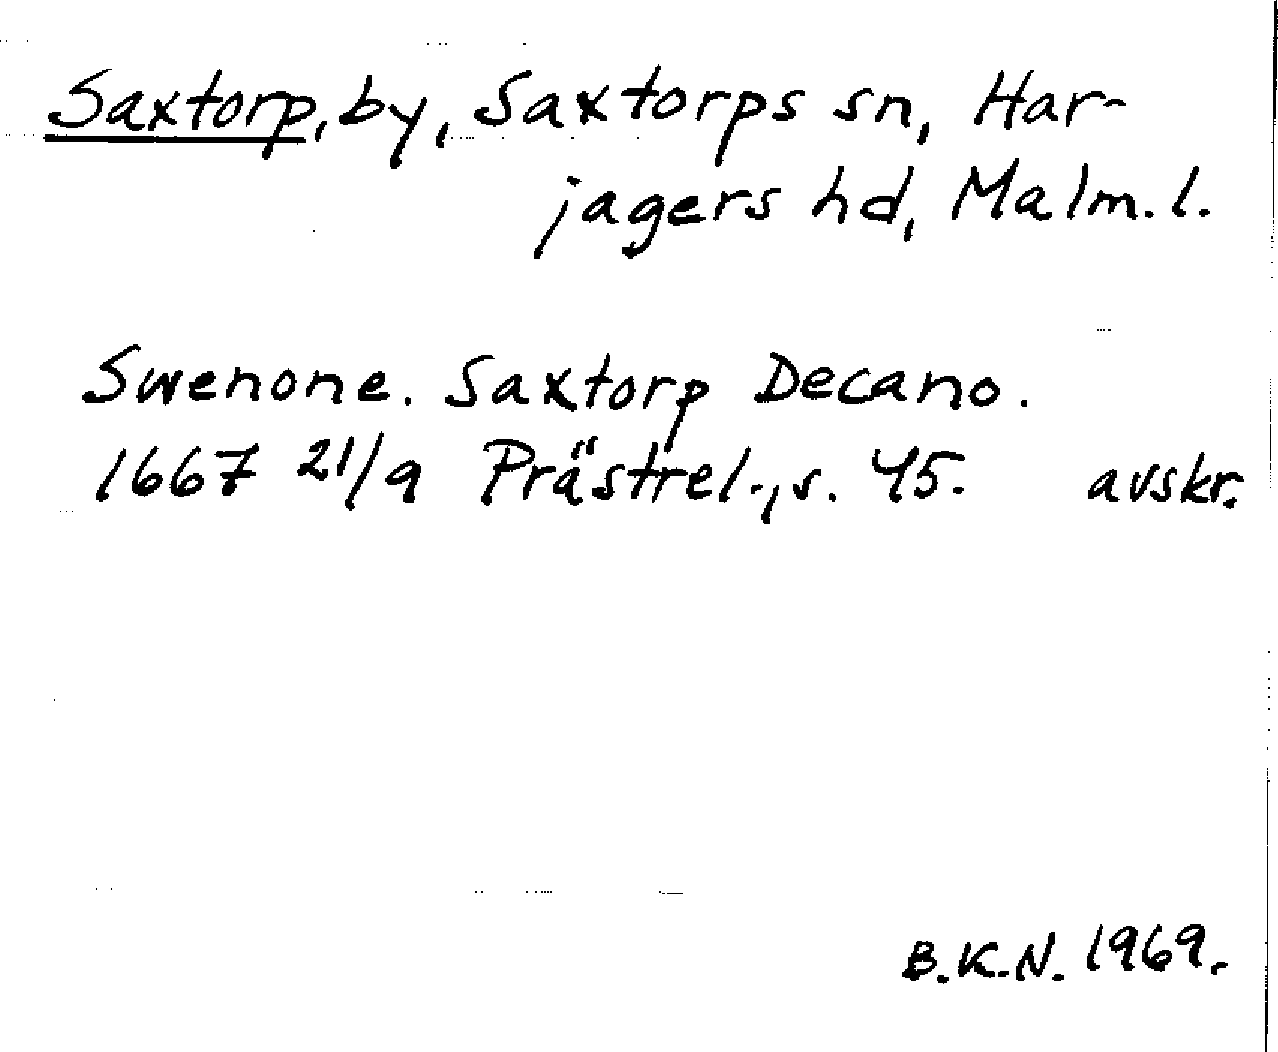 Saxtorp, by, Saxtorps sn, Har-
jagers hd, Malm. l.
Swenone. Saxtorp Decano.
1667 21/9 Prästrel., s. 45. avskr.
B.K.N. 1969.